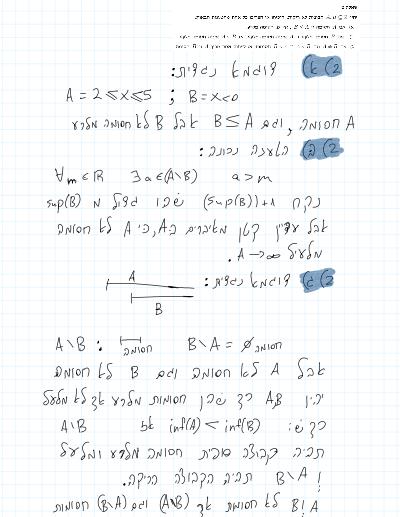 2) א) דוגמא נגדית:
A = 2≤x≤5 ; B = x<0
A חסומה, וגם B≤A אבל B לא חסומה מלרע
2) ב) הטענה נכונה:
∀m∈ℝ ∃a∈(A\B) a>m
נקח sup(B))+1) שהו גדול מ sup(B)
אבל עדיין קטן מאיברים בA, כי A לא חסומה
מלעיל A→∞.
2) ג) דוגמא נגדית:
A
B
A\B : חסומה B\A = ∅ חסומה
אבל A לא חסומה וגם B לא חסומה
יהיו A,B כך שהן חסומות מלרע אך לא מלעיל
כך ש: inf(A) < inf(B) אז A\B
תהיה קבוצה סופית חסומה מלרע ומלעל
ו B\A תהיה הקבוצה הריקה.
A וB לא חסומות אך (A\B) וגם (B\A) חסומות